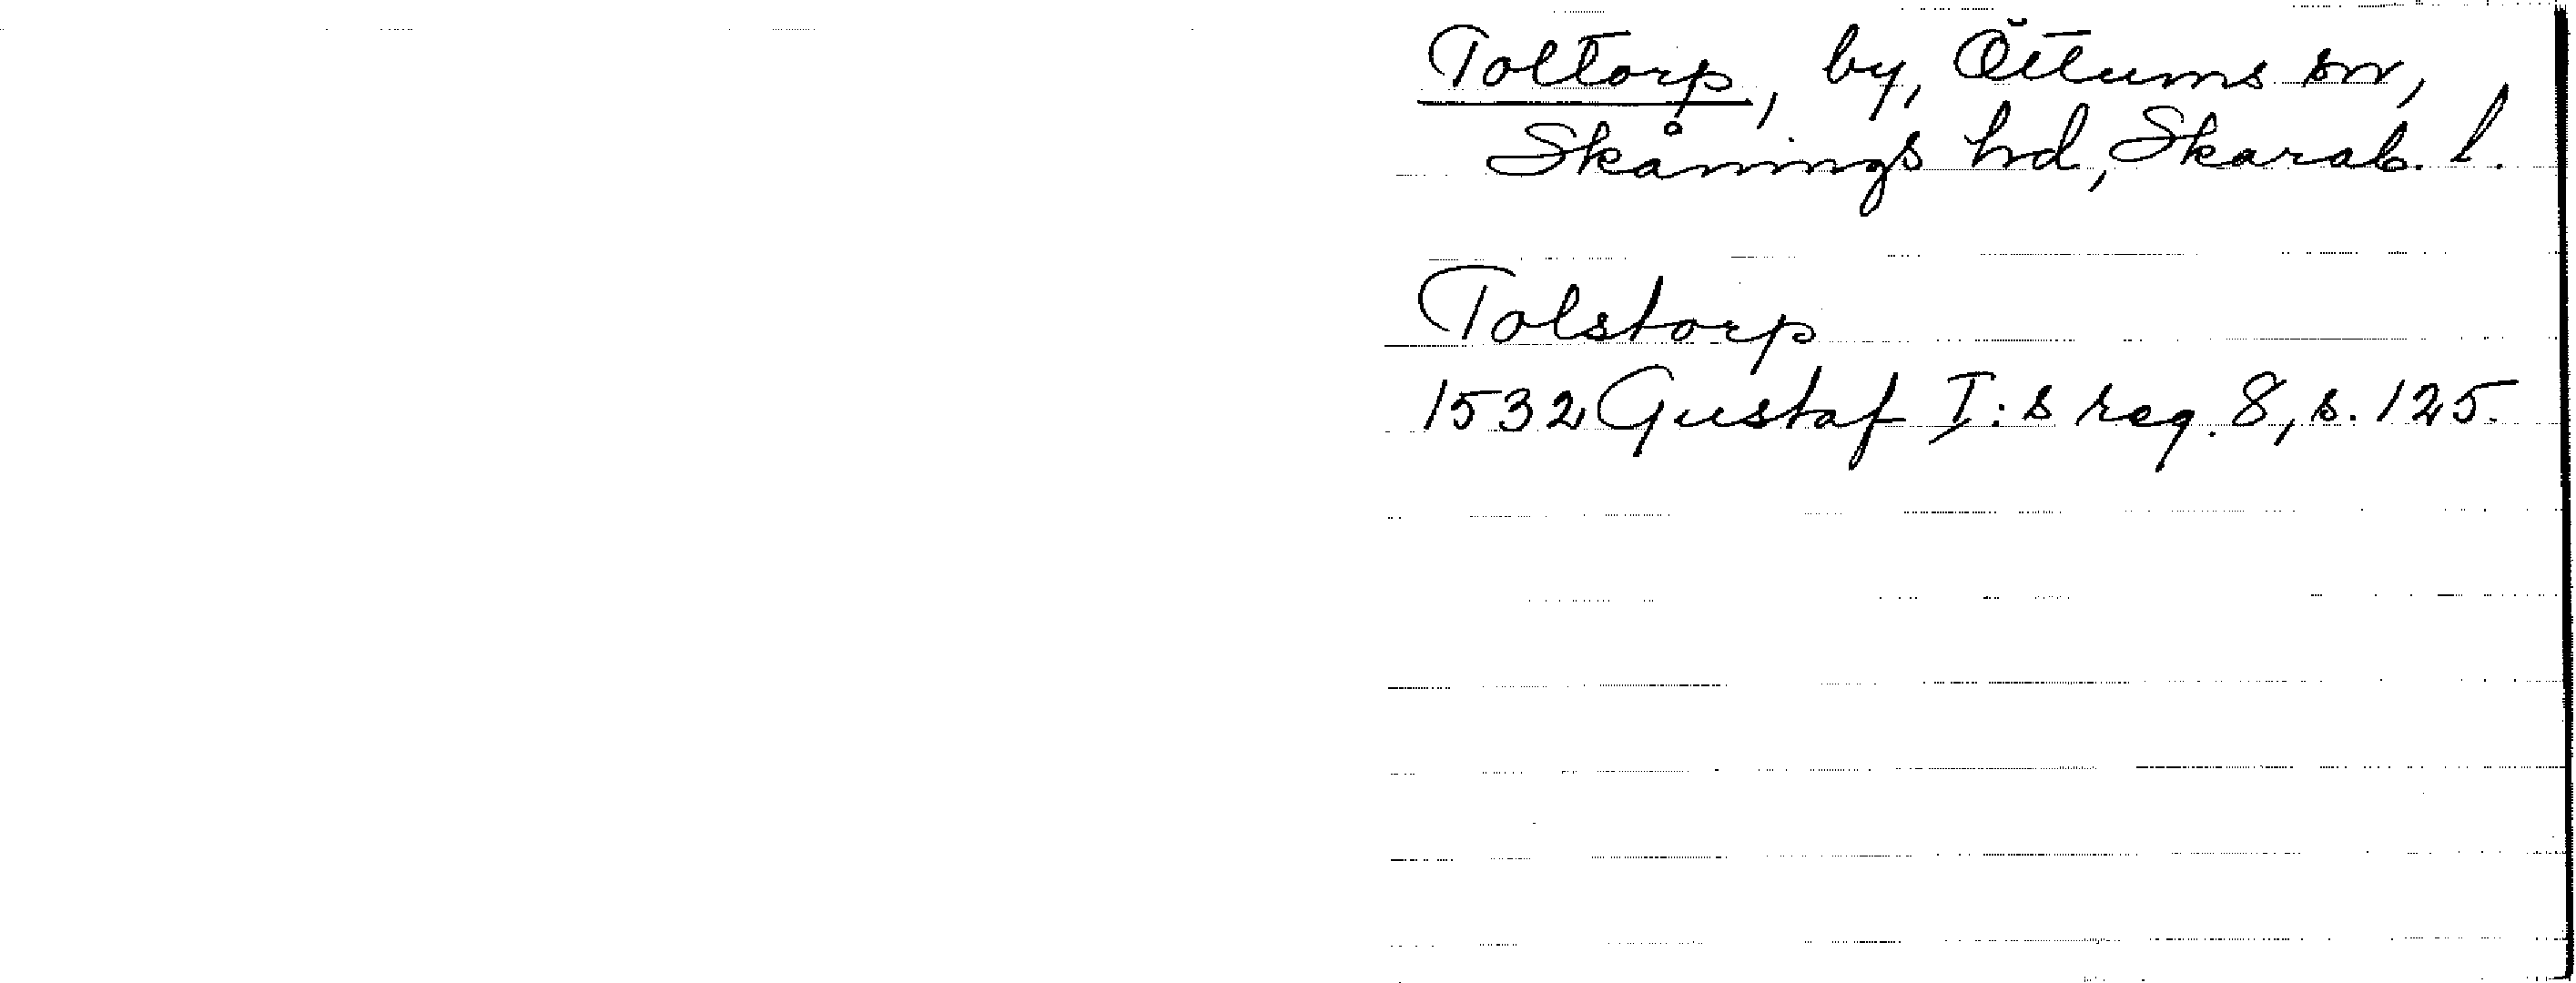 Toltorp, by, Öttums sn,
Skånings hd, Skarab. l.
Tolstorp
1532 Gustaf I:s reg. 8, s. 125.